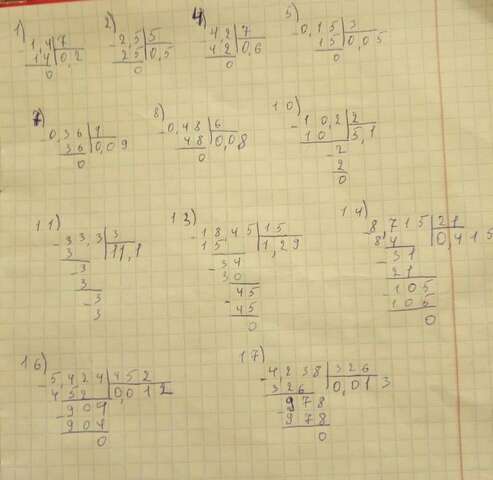 1) 2) 4) 5)
1,4 7 -2,5 5 -4,2 7 -0,15 3
14 0,2 25 0,5 42 0,6 15 0,05
0 0 0 0
7) 8) 10)
-0,36 4 -0,48 6 -10,2 2
36 0,09 48 0,08 10 5,1
0 0 -2
2
0
11) 13) 14)
-33,3 3 -18,45 15 -8,715 21
3 11,1 15 1,29 84 0,415
-3 -34 -31
3 30 21
-3 -45 -105
3 45 105
0 0
16) 17)
-5,424 452 -4,238 326
452 0,012 326 0,013
-904 -978
904 978
0 0